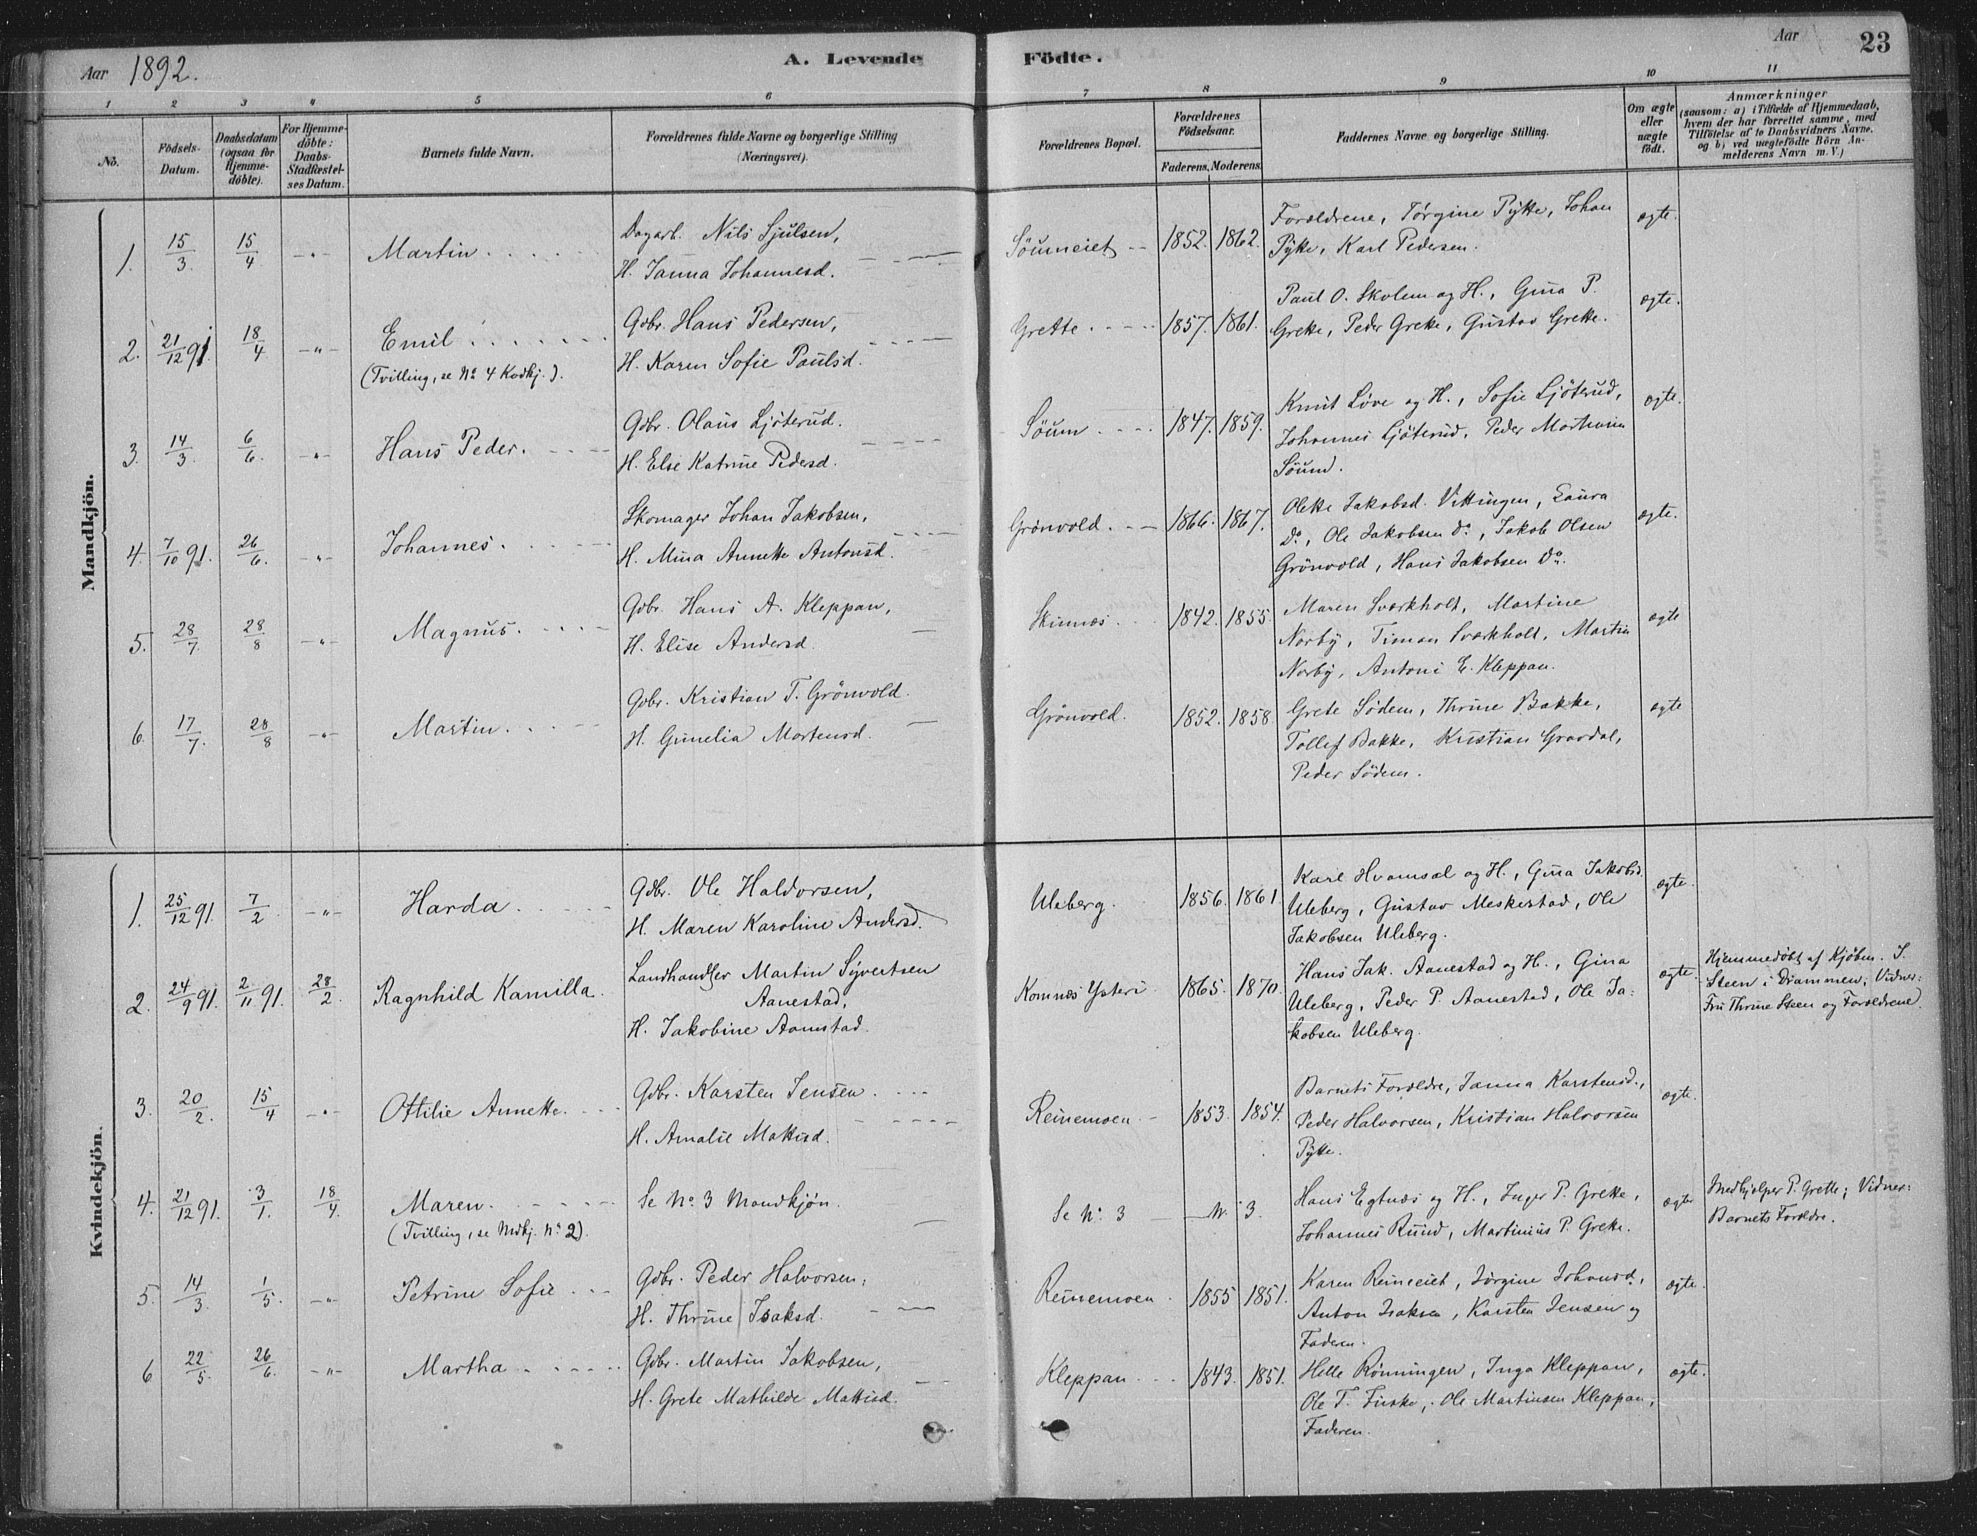 Aar 1892. A. Levende Födte. Aar 23
1 2 3 4 5 6 7 8 9 10 11
No. Födsels-Datum. Daabsdatum (ogsaa for Hjemme-döbte). For Hjemme-döbte: Daabs-Stadfæstel-ses Datum. Barnets fulde Navn. Forældrenes fulde Navne og borgerlige Stilling (Næringsvei). Forældrenes Bopæl. Forældrenes Födselsaar. Faderens. Moderens. Faddernes Navne og borgerlige Stilling. Om ægte eller uægte födt. Anmærkninger (saasom: a) i Tilfælde af Hjemmedaab, hvem der har forrettet samme, med Tilföielse af to Daabsvidners Navne, og b) ved uægtefödte Börn An-melderens Navn m. V.)
Mandkjön.
1. 15/3 15/4 -"- Martin. Dagarb. Nils Sjulsen, Söumeiet 1852. 1862. Forældrene, Törgine Pytte, Johan ægte.
H. Janna Johannesd. Pytte, Karl Pedersen.
2. 21/12 91. 18/4 -"- Emil Gdbr. Hans Pedersen, Grette 1857. 1861. Paul O. Skolem og H., Gina P. ægte.
(Tvilling, se No 4 Kvdkj.). H. Karen Sofie Paulsd. Grette, Peder Grette, Gustav Grette.
3. 14/3 6/6. -"- Hans Peder. Gdbr. Olaus Ljöterud. Söum 1847. 1859. Knut Löve og H., Sofie Ljöterud, ægte.
H. Else Katrine Pedersd. Johannes Ljöterud, Peder Mathias
Söum.
4. 7/10 91. 26/6. -"- Johannes. Skomager Johan Jakobsen, Grönvold. 1866. 1867. Oleke Jakobsd. Vittingen, Laura ægte.
H. Mina Annette Antonsd. Do, Ole Jakobsen Do, Jakob Olsen
Grönvold, Hans Jakobsen Do.
5. 28/7. 28/8 -"- Magnus. Gdbr. Hans A. Kleppan, Skinnes 1842. 1855. Maren Sværkholt, Martine ægte
H. Elise Andersd. Norby, Timan Sværkholt, Martin
Norby, Antoni E. Kleppan.
6. 17/7. 28/8 -"- Martin. Gdbr. Kristian T. Grönvold. Grönvold. 1852. 1858 Grete Södem, Thrine Bakke, ægte
H. Gunelia Mortensd. Tollef Bakke, Kristian Graadal,
Peder Södem.
Kvindekjön.
1. 25/12 91. 7/2 -"- Harda Gdbr. Ole Haldorsen, Uleberg. 1856. 1861 Karl Hvamsal og H., Gina Jakobsd. ægte.
H. Maren Karoline Andersd. Uleberg, Gustav Meskestad, Ole
Jakobsen Uleberg.
2. 24/9 91. 2/11 91. 28/2. Ragnhild Kamilla. Landhandler Martin Syvertsen Komnæs Ysteri 1865. 1870. Hans Jak. Aanestad og H., Gina ægte. Hjemmedöbt af Kjöbm. J.
Aanestad, Uleberg, Peder P. Aanestad, Ole Ja- Steen i Drammen; Vidner:
H. Jakobine Aanestad. kobsen Uleberg. Fru Thrine Steen og Forældrene.
3. 20/2. 15/4 -"- Ottilie Annette. Gdbr. Karsten Jensen Reinemoen 1853. 1854. Barnets Forældre, Janna Karstensd., ægte.
H. Amalie Mattisd. Peder Halvorsen, Kristian Halvorsen
Pytte.
4. 21/12 91. 3/1. 18/4. Maren. Se No. 3 Mandkjön. Se No. 3 No. 3. Hans Egtnæs og H., Inger P. Grette, ægte Medhjelper P. Grette; Vidner:
(Tvilling, se Mdkj. No 2). Johannes Ruud, Martinius P. Grette. Barnets Forældre.
5. 14/3. 1/5. -"- Petrine Sofie Gdbr. Peder Halvorsen, Reinemoen 1855 1851. Karen Reineeiet, Jörgine Johansd., ægte.
H. Thrine Isaksd. Anton Isaksen, Karsten Jensen og
Faderen.
6 22/5. 26/6. -"- Martha Gdbr. Martin Jakobsen, Kleppan 1843. 1851. Helle Rönningen, Inga Kleppan, ægte.
H. Grete Mathilde Mattisd. Ole T. Fuske, Ole Martinsen Kleppan,
Faderen.